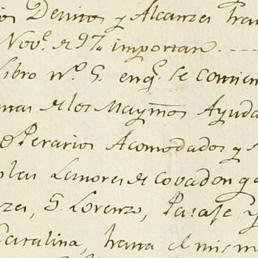 os Devitos y Alcanzes hau
Nov.e de 97,, importan
Libro n.o 5. enq.e se contien
mas de los Maym.os Ayuda
Operarios Acomodados y
Lavores de Covadonga
zes, S. Lorenzo, Pasaje y
Catalina, hasta el mism